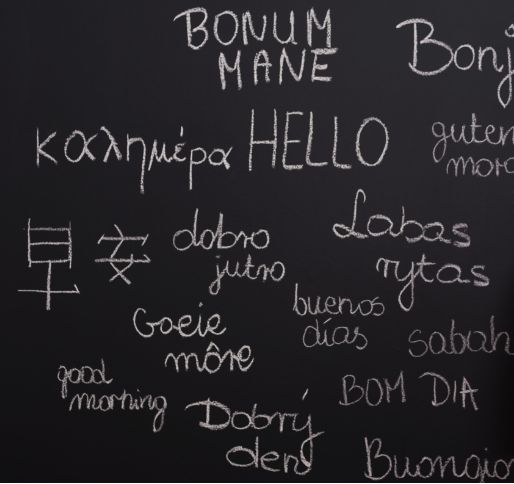 BONUM
MANE
Bonj
καλημέρα
HELLO
guten
morg
早安
dobro
jutro
Labas
rytas
Goeie
môre
buenos
días
sabah
good
morning
BOM DIA
Dobrý
den
Buongio